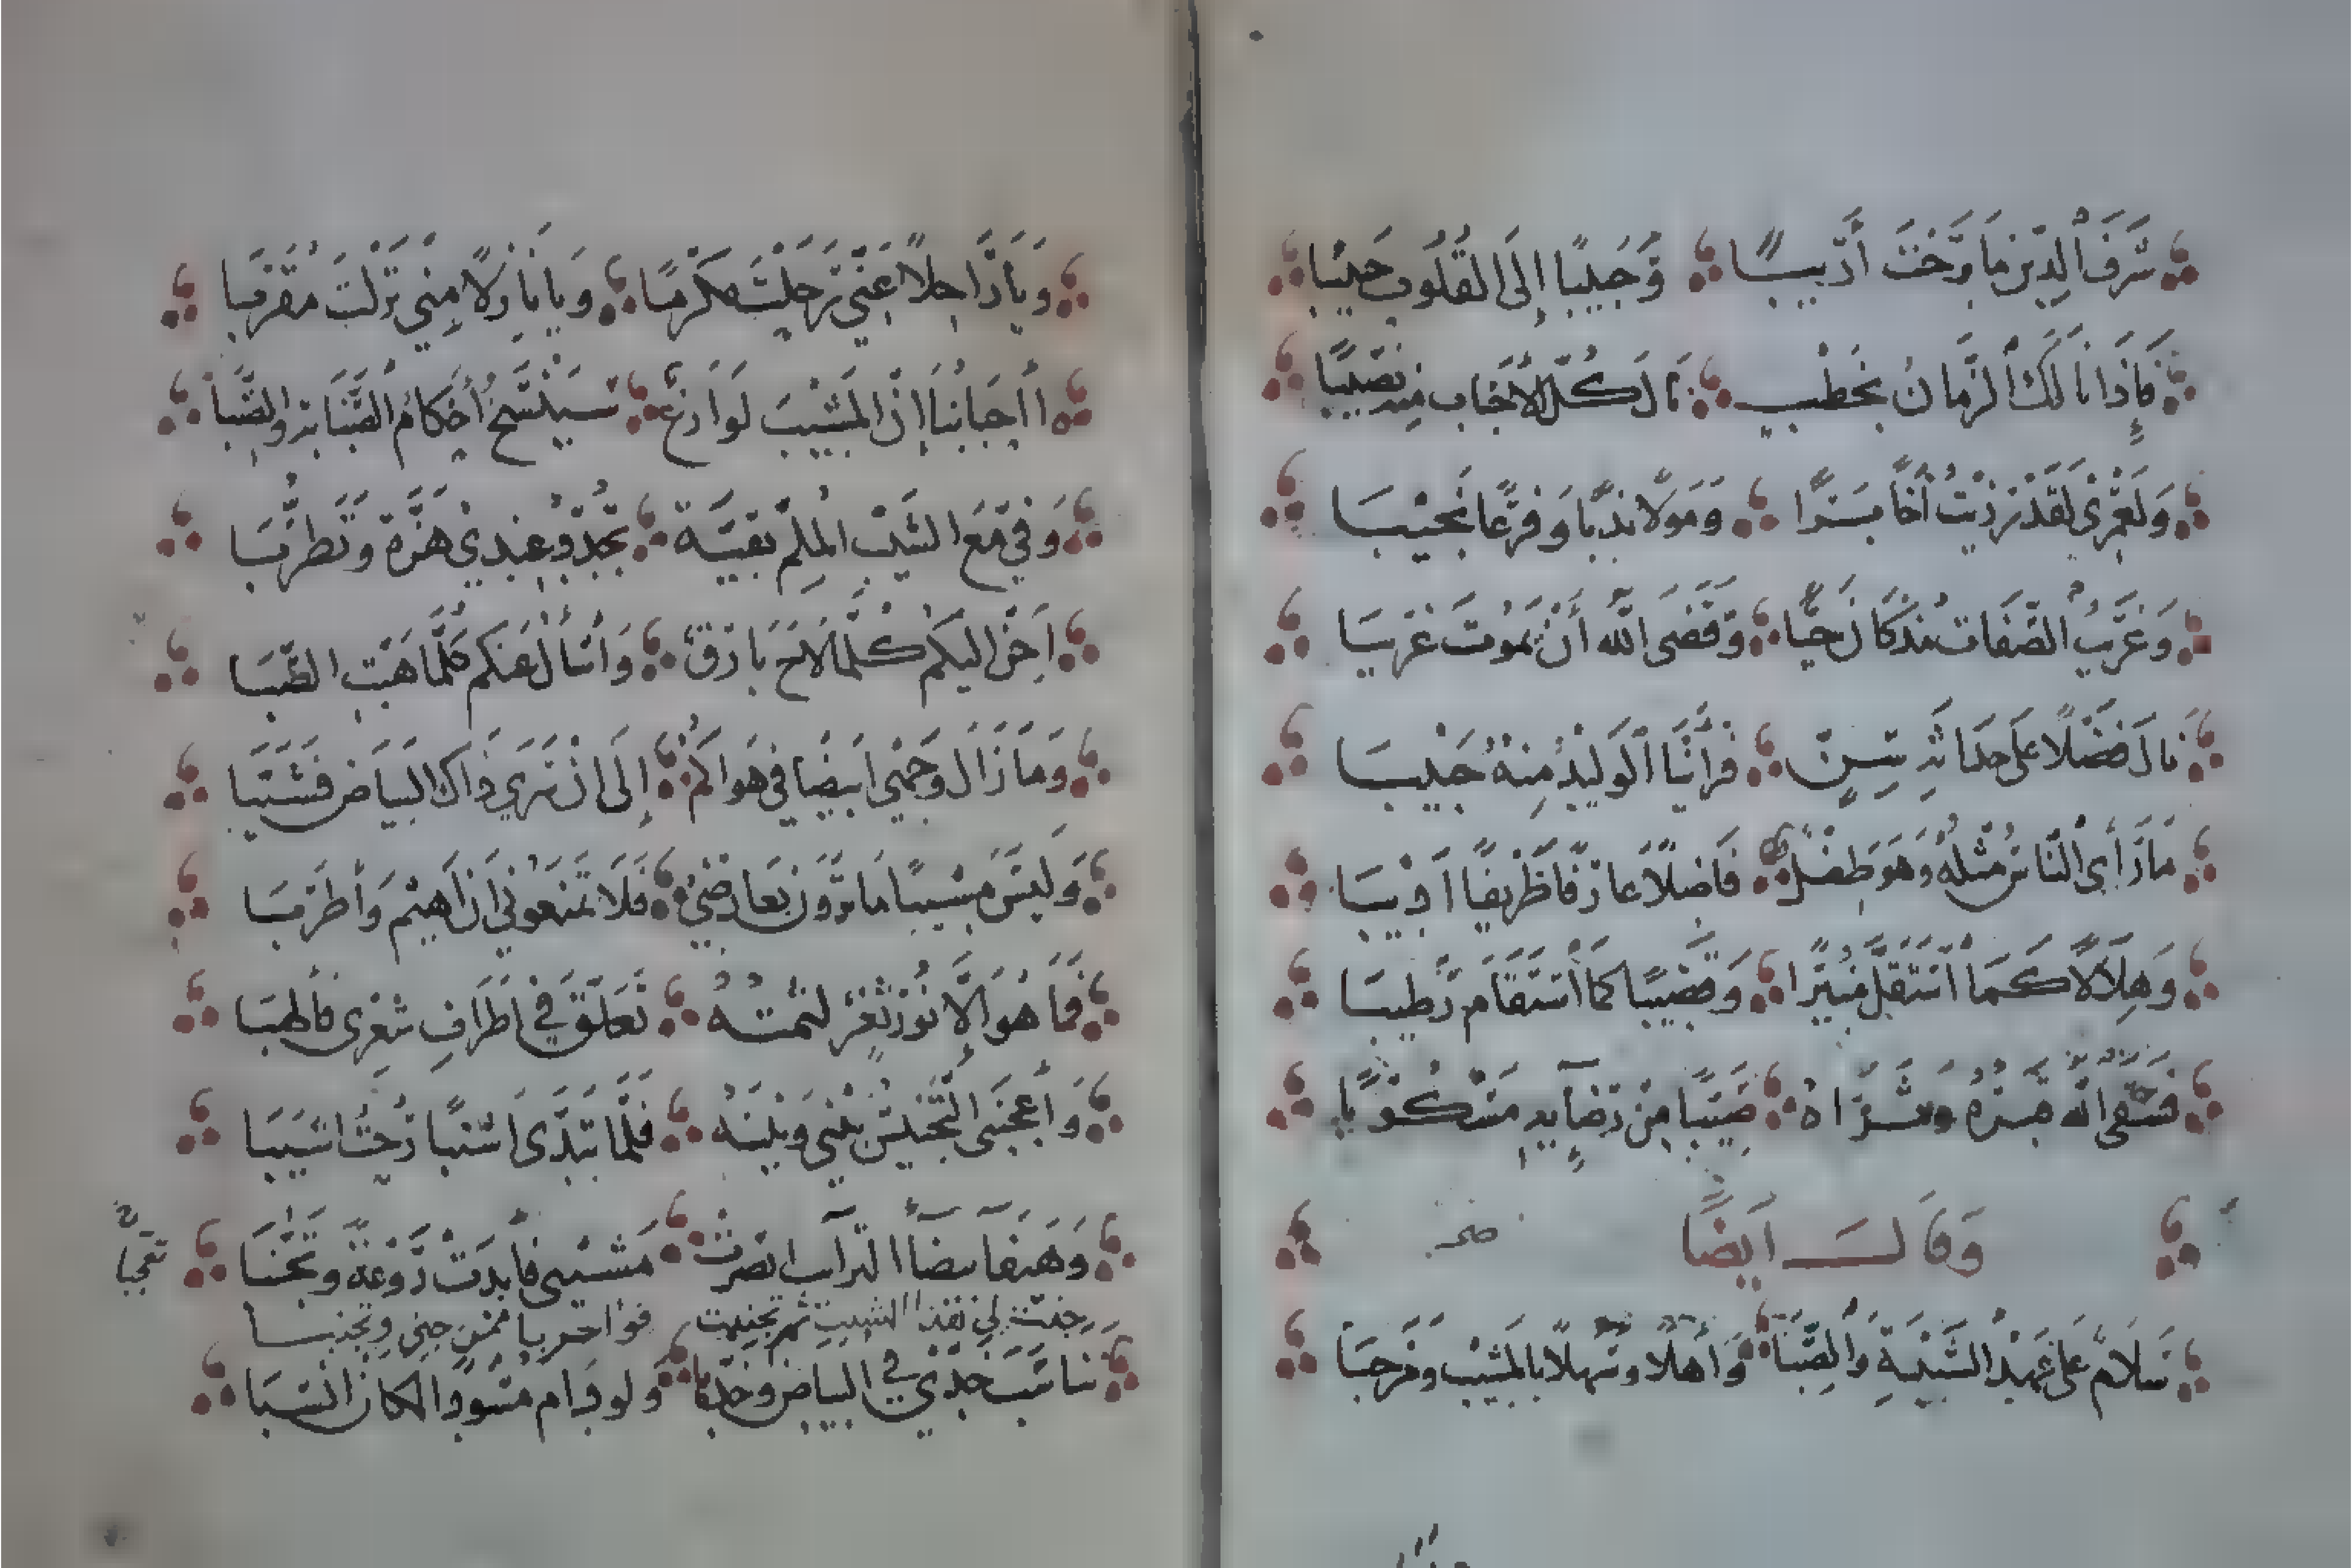 شَرَفَ الدِّينِ مَا بَرِحْتَ أَدِيبًا وَحَبِيبًا إِلَى القُلُوبِ حَبِيبَا
فَإِذَا نَالَكَ الزَّمَانُ بِخَطْبٍ نَالَ كُلُّ الأَحْبَابِ مِنْهُ نَصِيبًا
وَلَعَمْرِي لَقَدْ رُزِيتُ أَخًا بَرًّا وَمَوْلًا نَدْبًا وَفَرْعًا نَجِيبَا
وَغَرِيبُ الصِّفَاتِ مُذْ كَانَ حَيًّا وَقَضَى اللَّهُ أَنْ يَمُوتَ غَرِيبَا
نَالَ فَضْلًا عَلَى حَدَاثَةِ سِنٍّ فَرَأَيْنَا الْوَلِيدَ مِنْهُ حَبِيبَا
مَا رَأَى النَّاسُ مِثْلَهُ وَهُوَ طِفْلٌ فَاضِلًا عَارِفًا ظَرِيفًا أَدِيبَا
وَهِلَالًا كَمَا اسْتَقَلَّ مُنِيرًا وَقَضِيبًا كَمَا اسْتَقَامَ رَطِيبَا
فَسَقَى اللَّهُ قَبْرَهُ وَثَرَاهُ صَيِّبًا مِنْ رِضَابِهِ مَسْكُوبًا
وَقَالَ أَيْضًا
سَلَامٌ عَلَى عَهْدِ الشَّبِيبَةِ وَالصِّبَا وَأَهْلًا وَسَهْلًا بِالمَشِيبِ وَمَرْحَبَا
وَيَا رَاحِلًا عَنِّي تَرَحَّلْتَ مُكْرَمًا وَيَا نَازِلًا مِنِّي نَزَلْتَ مُقَرَّبَا
أَأَحْبَابَنَا إِنَّ المَشِيبَ لَوَازِعٌ سَيَنْسَخُ أَحْكَامَ الصَّبَابَةِ وَالصِّبَا
وَفِيَّ مَعَ الشَّيْبِ المُلِمِّ بَقِيَّةٌ تُجَدِّدُ عِنْدِي هَزَّةً وَتَطَرُّبَا
أَحِنُّ اليكُم كُلَّمَا لَاحَ بَارِقٌ وَأَسْأَلُ عَنكُم كُلَّمَا هَبَّتِ الصَّبَا
وَمَا زَالَ وَجْهِي أَبْيَضًا فِي هَوَاكُمُ إِلَى أَنْ سَرَى ذَاكَ البَيَاضُ فَشَيَّبَا
وَلَيْسَ مَشِيبًا مَا تَرَوْنَ بِعَارِضِي فَلَا تَمْنَعُونِي أَنْ أَهِيمَ وَأَطْرَبَا
فَمَا هُوَ إِلَّا نُورُ ثَغْرٍ لَثَمْتُهُ تَعَلَّقَ فِي أَطْرَافِ شَعْرِي فَأَلْهَبَا
وَأَعْجَبَنِي التَّجْنِيسُ بَيْنِي وَبَيْنَهُ فَلَمَّا تَبَدَّى أَشْنَبًا رُحْتُ أَشْيَبَا
وَهَيْفَا بَيْضَاءَ التَّرَائِبِ أَبْصَرَتْ مَشِيبِي فَأَبْدَتْ رَوْعَةً وَتَجَنُّبَا تعجبا
جنت لي هذا الشيب ثم تجنبت فوا حربا ممن جنى وتجنبا
تَنَاسَبَ خَدِّي فِي البَيَاضِ وَخَدُّهَا وَلَو دَامَ مُسْوَدًّا لَكَانَ أَنْسَبَا